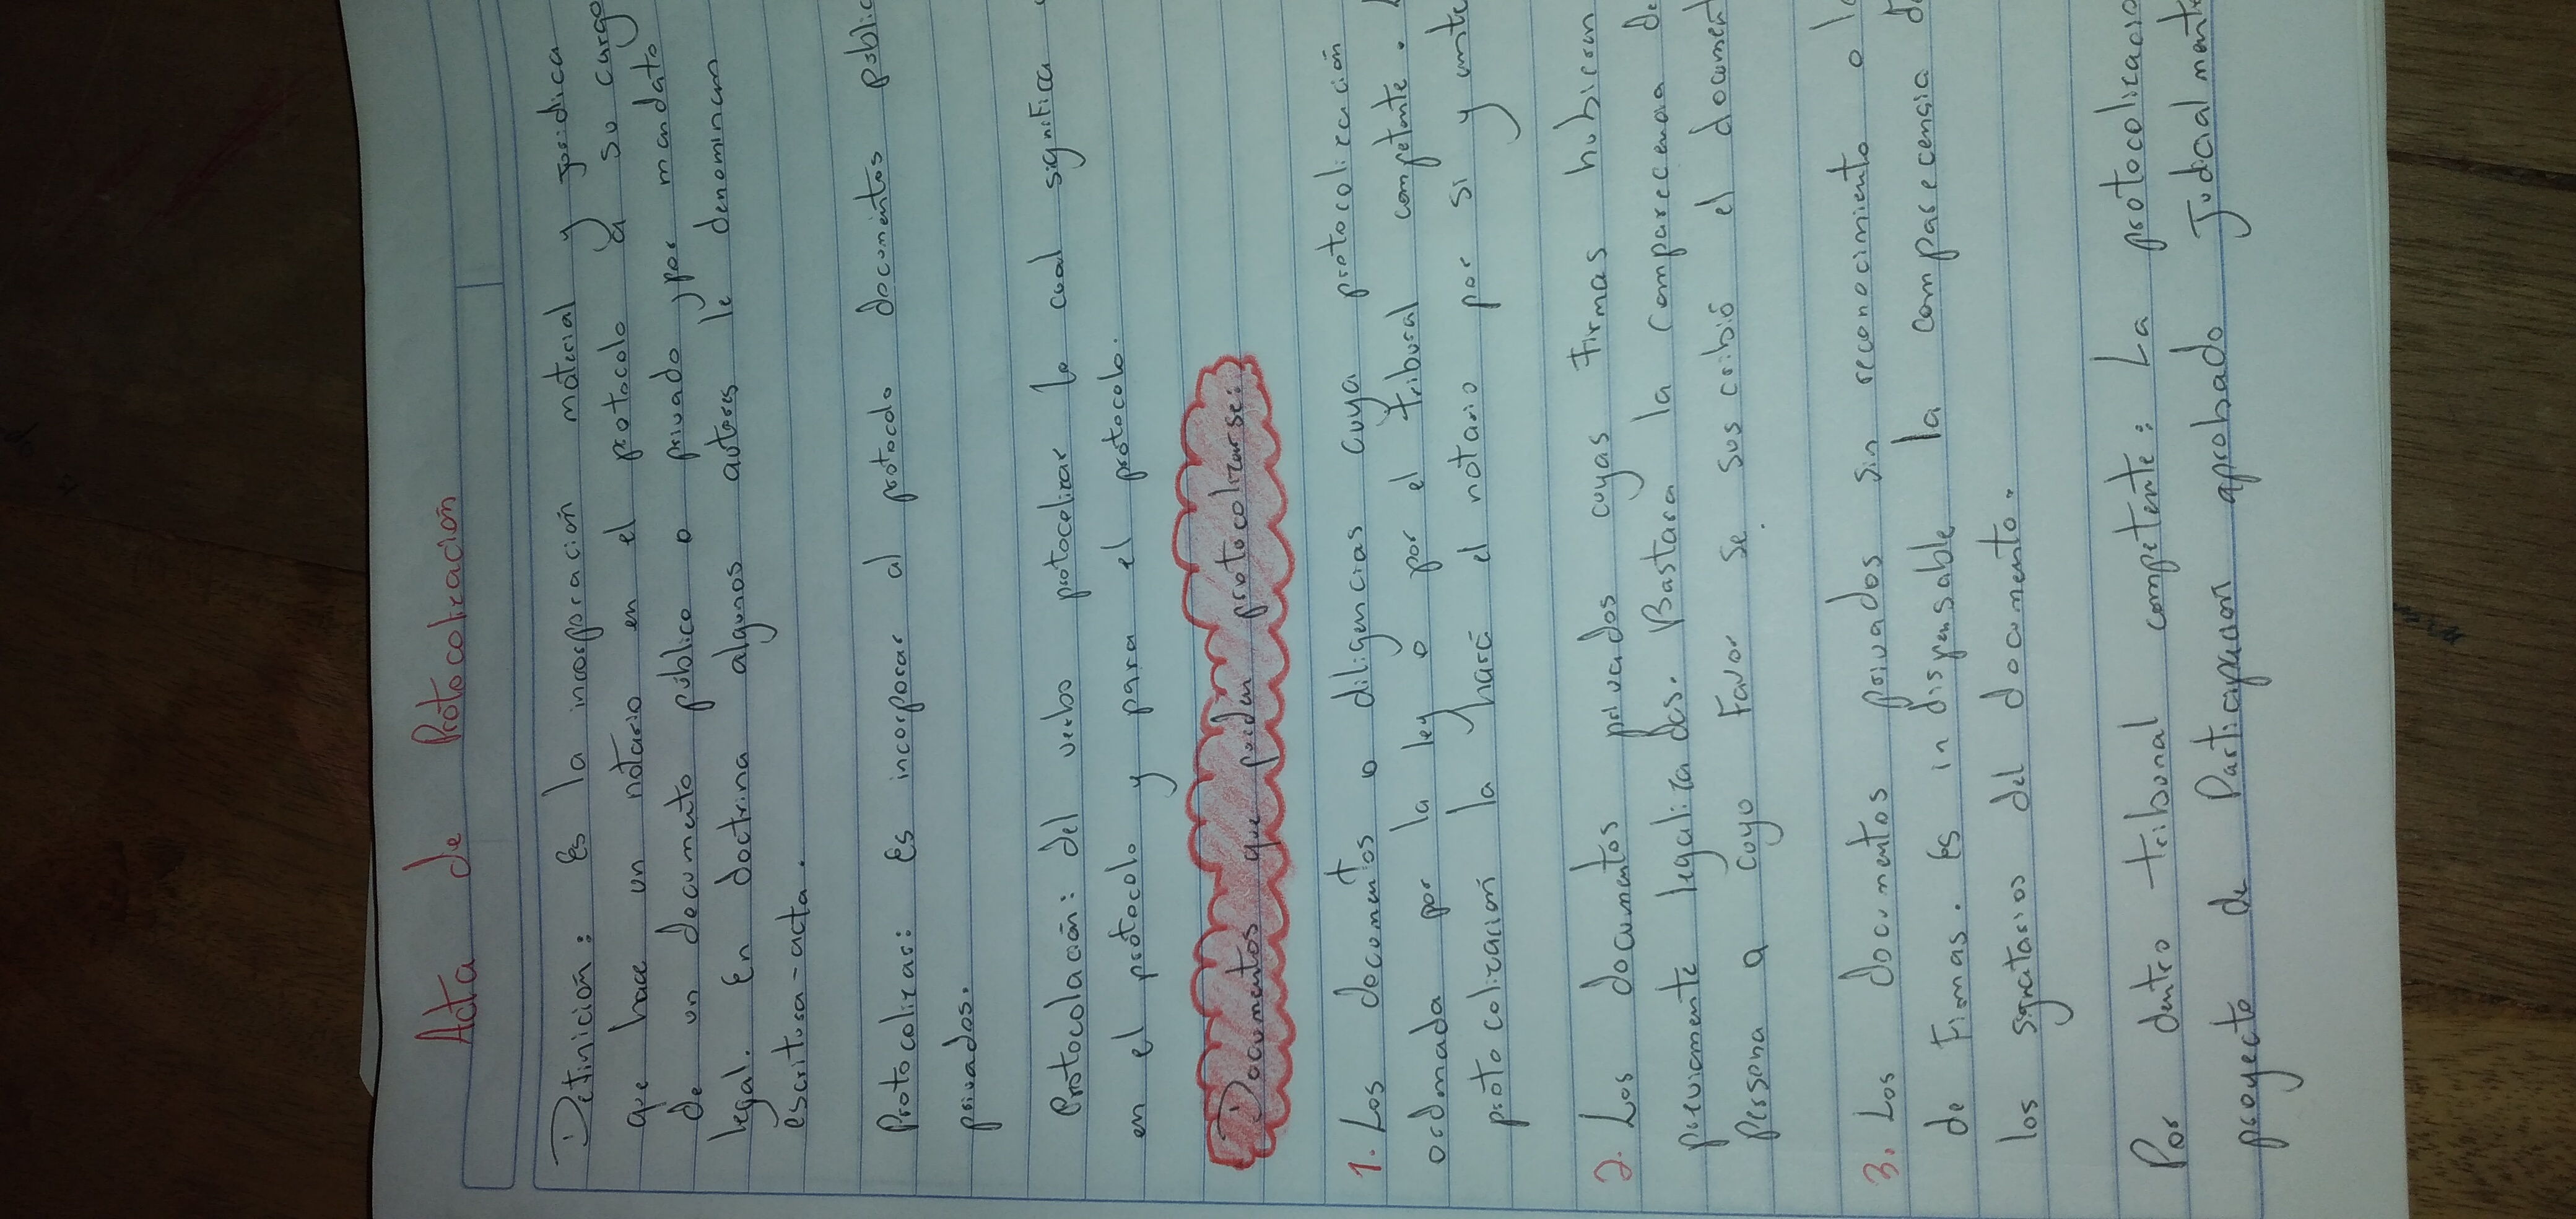 Acta de Protocolización
Definición: Es la incorporación material y jurídica
que hace un notario en el protocolo a su cargo
de un documento público o privado, por mandato
legal. En doctrina algunos autores le denominan
escritura-acta.
Protocolizar: Es incorporar al protocolo documentos públic
privados.
Protocolación: del verbo protocolizar lo cual significa
en el protocolo y para el protocolo.
Documentos que pueden protocolizarse:
1. Los documentos o diligencias cuya protocolización
ordenada por la ley o por el tribunal competente.
protocolización la hará el notario por si y ante
2. Los documentos privados cuyas firmas hubieran
previamente legalizados. Bastara la comparecencia de
persona a cuyo favor se suscribió el document
3. Los documentos privados sin reconocimiento o
de Firmas. Es indispensable la comparecencia d
los signatarios del documento.
Por dentro tribunal competente: La protocolización
proyecto de Participación aprobado Judialmente